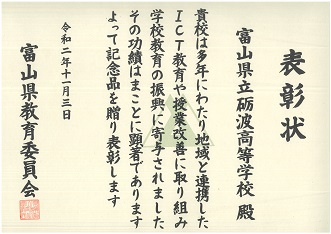 表彰状
富山県立砺波高等学校 殿
貴校は多年にわたり地域と連携した
ICT教育や授業改善に取り組み
学校教育の振興に寄与されました
その功績はまことに顕著であります
よって記念品を贈り表彰します
令和二年十一月三日
富山県教育委員会